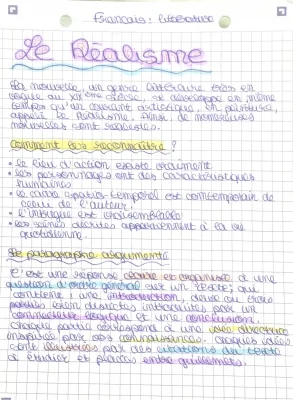 Français : littérature
Le Réalisme
La nouvelle, un genre littéraire très en
vogue au XIXème siècle, se développe en même
temps qu'un courant artistique, en peinture,
appelé le Réalisme. Ainsi de nombreuses
nouvelles sont réalistes.
Comment les reconnaître ?
• le lieu d'action existe vraiment
• les personnages ont des caractéristiques
humaines
• le cadre spatio-temporel est contemporain de
celui de l'auteur.
• l'intrigue est vraisemblable
• les scènes décrites appartiennent à la vie
quotidienne.
Le paragraphe argumenté
C'est une réponse écrite et organisée, à une
question d'ordre général sur un texte; qui
contient : une introduction, deux ou trois
parties bien distinctes introduites par un
connecteur logique et une conclusion.
Chaque partie correspond à une idée directrice
inspirée par nos connaissances. Chaques idées
sont illustrées par des citations du texte
à étudier et placées entre guillemets.